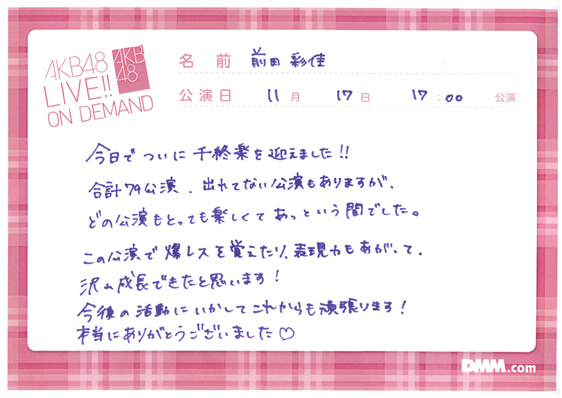 AKB48
LIVE!!
ON DEMAND
AKB
48
名 前 前田 彩佳
公演日 11月 17日 17:00 公演
今日でついに千秋楽を迎えました!!
合計79公演、出れてない公演もありますが、
どの公演もとっても楽しくてあっという間でした。
この公演で爆レスを覚えたり、表現力もあがって、
沢山成長できたと思います!
今後の活動にいかしてこれからも頑張ります!
本当にありがとうございました♡
DMM.com